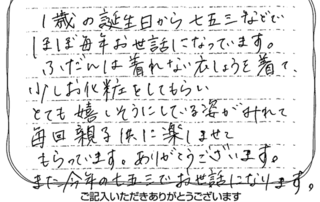 1歳の誕生日から七五三などで
ほぼ毎年お世話になっています。
ふだんは着れない衣しょうを着て、
少しお化粧をしてもらい
とても嬉しそうにしている姿がみれて
毎回親子供に楽しませて
もらっています。ありがとうございます。
また今年の七五三でお世話になります。
ご記入いただきありがとうございます